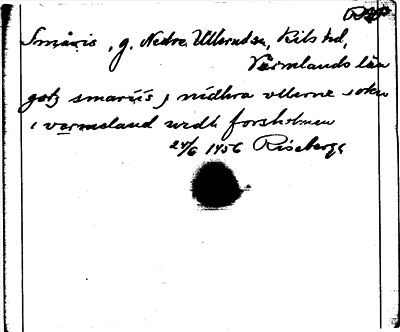 Smäris, g. Nedre Ullerudsn, Kils hd,
Värmlands län
gotz smariis j nidhra vllerne sokn
i vermeland widh forsholmen
24/6 1456 Riseberga